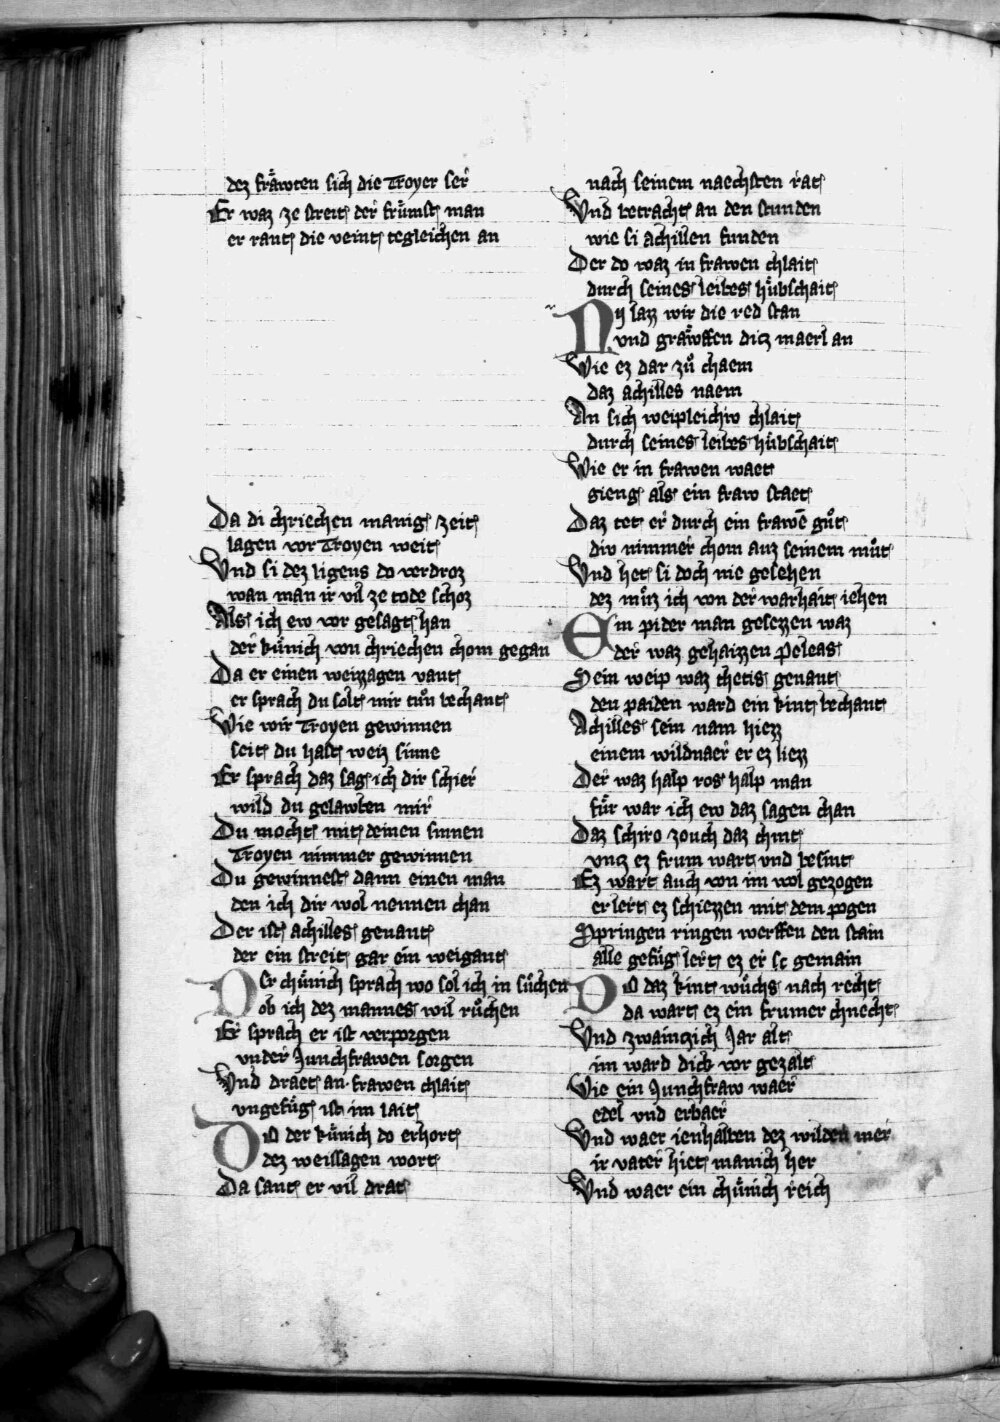 dez fraͤwten sich die Troyer ser
Er waz ze streit der fruͤmst man
er rant die veint tegleichen an
Da di chriechen manig zeit
lagen vor Troyen weit
Vnd si dez ligens do verdroz
wan man ir vil ze tode schoz
Als ich ew vor gesagt han
der kuͤnich von chriechen chom gegan
Da er einen weizzagen vant
er sprach du solt mir tuͦn bechant
Wie wir Troyen gewinnen
seit du hast weiz sinne
Er sprach daz sag ich dir schier
wild du gelawben mir
Du mocht mit deinen sinnen
Troyen nimmer gewinnen
Du gewinnest dann einen man
den ich dir wol nennen chan
Der ist achilles genant
der ein streit gar ein weigant
Der chuͤnich sprach wo sol ich in suͦchen
ob ich dez mannes wil ruͦchen
Er sprach er ist verporgen
vnder Junchfrawen sorgen
Vnd draet an frawen chlait
vngefuͤg ist im lait
Do der kuͤnich do erhort
dez weissagen wort
Da sant er vil drat
nach seinem naechsten rat
Vnd betracht an den stunden
wie si achillen funden
Der do waz in frawen chlait
durch seines leibes huͤbschait
Nv lazz wir die red stan
vnd graͤwffen ditz maerl an
Wie ez dar zuͦ chaem
daz achilles naem
An sich weipleichiv chlait
durch seines leibes huͤbschait
Wie er in frawen waet
gieng als ein fraw staet
Daz tet er durch ein frawē guͦt
div nimmer chom auz seinem muͦt
Vnd het si doch nie gesehen
dez muͦz ich von der warhait iehen
Ein pider man gesezzen waz
der waz gehaizzen Peleas
Sein weip waz thetis genant
den paiden ward ein kint bechant
Achilles sein nam hiezz
einem wildnaer er ez liezz
Der waz halp ros halp man
fuͤr war ich ew daz sagen chan
Daz schiro zouch daz chint
vntz ez frum wart vnd besint
Ez wart auch von im wol gezogen
er lert ez schiezzen mit dem pogen
Springen ringen werffen den stain
alle gefuͤg lert ez er gemain
Do daz kint wuͦchs nach recht
da wart ez ein frumer chnecht
Vnd zwaintzich Jar alt
im ward dick vor gezalt
Wie ein Junchfraw waer
edel vnd erbaer
Vnd waer ienhalben dez wilden mer
ir vater hiet manich her
Vnd waer ein chuͤnich reich